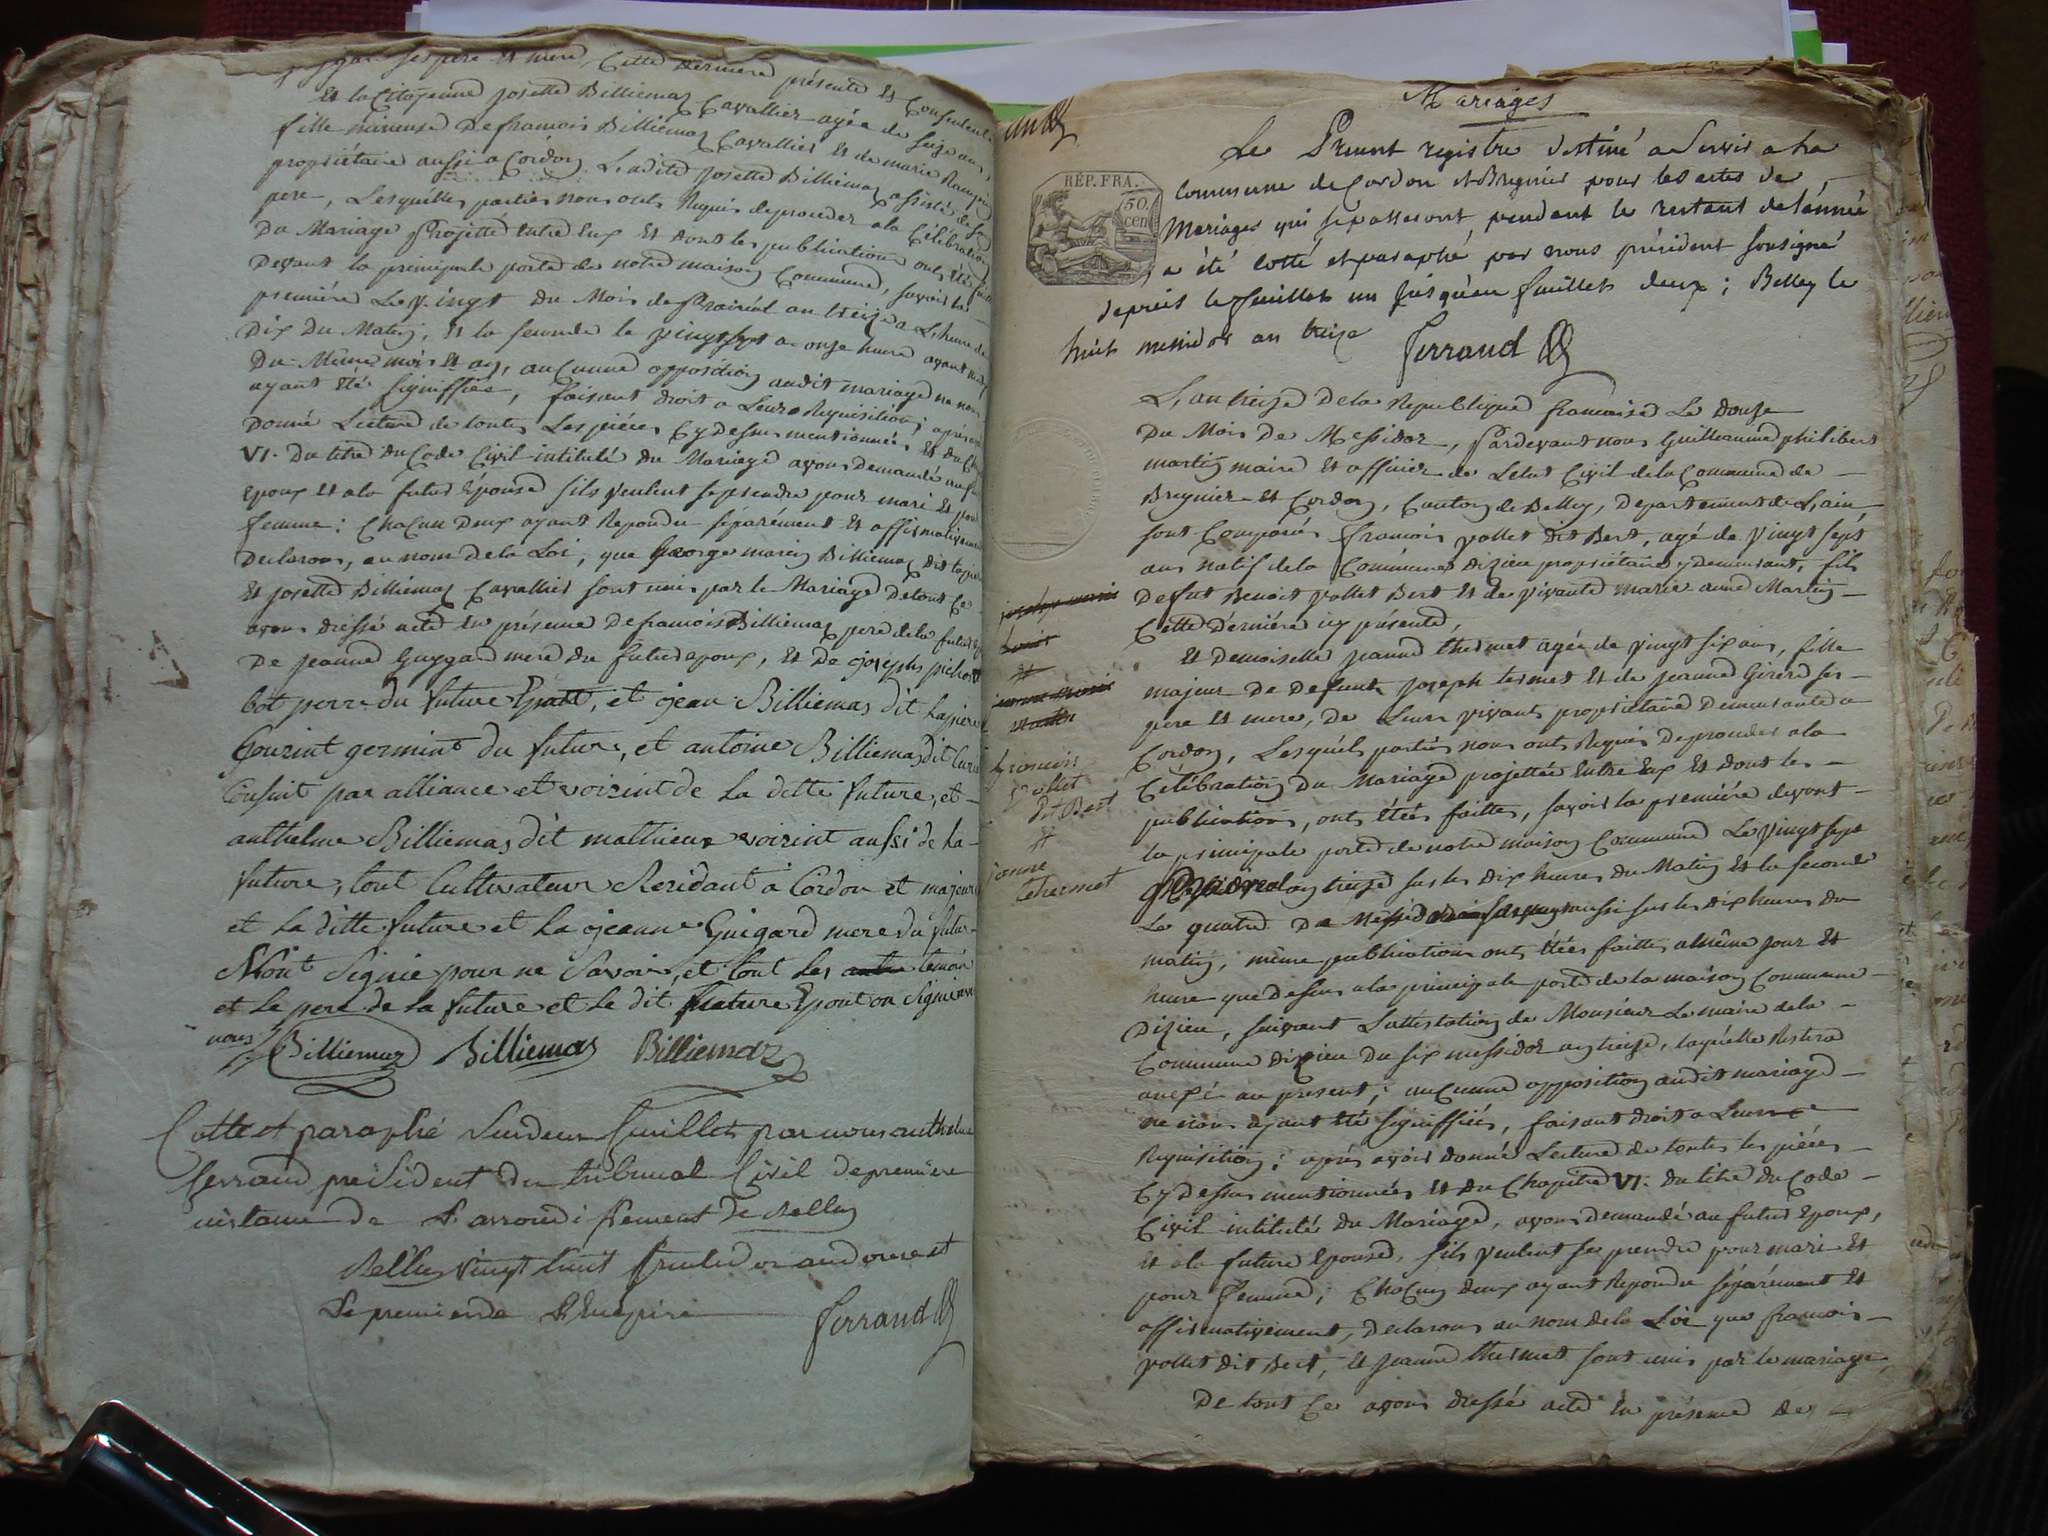 par ses pere et mere, Cette derniere présente et Consentente
Et la Citoyenne josette Billiemaz Cavallier agée de seize ans,
fille mineuse De francois Billiemaz Cavallier et de marie
propriétaire aussi a Cordon, Ladite josette Billiemaz assisté de son
pere, Lesquelles parties nous ont Requis de proceder a la Célébration
Du Mariage Projetté entre Eux Et dont les publications ont été faites
Devant la principale porte de notre maison Commune, savoir la
premiére Le vingt du Mois de Prairial an treize a L'heure de
Dix du Matin, et la seconde le vingt sept a onze heure avant midy
Du Même mois et an, auCunne opposition audit mariage ne nous
ayant été signiffiée, faisant droit a Leurs Requisitions, aprés avoir
Donné Lecture de toutes Les piéces Cy Dessus mentionnées, et du Chapitre
VI. Du titre du Code Civil intitulé du Mariage avons Demandé au futur
Epoux et a la futur Epouse s'ils veulent se prendre pour mari et pour
femme: ChaCun Deux ayant Repondu séparément et affirmativement
Declarons, au nom De la Loi, que George marin Billiemaz dit Lapierre
Et josette Billiemaz Cavallier sont unis par le Mariage De tout Ce
avons dressé acte En présence De francois Billiemaz pere de la future
De jeanne Guygard mere du futur epoux, Et De joseph pichon
bot perre du future Epoux, et jean Billiemas dit Lapiere
Courint germint du future, et antoine Billiemas dit
Confint par alliance et voizint de La ditte future, et
anthelme Billiemas dit mathieux voizint aussi de La
future, tout Cultivateur Rezidant à Cordon et majeure
et La ditte future et La jeanne Guigard mere du futur
N'ont Signié pour ne Savoir, et tout les autre temoin
et Le pere de La future et Le dit future Epout on Signe avec
nous Billiemaz Billiemas Billiemaz
Cotté et paraphé Sur deux feuillets par nous anthelme
ferrand president du tribunal Civil de premiere
instance de L'arrondissement de Belley
Belley vingt huit fructidor an douze et
Le premier de L'Empire ferrand
un
Mariages
RÉP. FRA.
50 cen
Le Present registre destiné a Servir a La
commune de Cordon et Bregnier pour les actes de
Mariages qui se passeront pendant le restant de l'année
a été cotté et paraphé par nous président Sousigné
depuis le feuillet un jusqu'au feuillet deux; Belley le
huit messidor an treize ferrand
L'an treize De la Republique francaise Le Douze
Du Mois De Messidor, Pardevant nous Guilleaume philibert
martin maire Et officier de Letat Civil de la Commune de
Bregnier et Cordon, Canton de Belley, Departement de L'ain
sont Comparus francois vollet Dit Bert, agé de vingt sept
ans natif de la Commune dizieu propriétaire y demeurant, fils
De fut Benoit vollet Bert Et de vivante marie anne Martin
Cette Derniére icy présente,
Et Demoiselle jeanne thermet agée de vingt six ans, fille
majeur De Defunt joseph termet Et de jeanne Girerd ses
pere Et mere, De Leur vivant propriétaire Demeurante a
Cordon, Lesquels parties nous ont Requis De proceder a la
Célébration Du Mariage projettée Entre Eux Et dont les
publications, ont étées faittes, savoir la premiére devant
la principale porte de notre maison Commune Le vingt sept
Prairial an treize sur les dix heures du Matin Et la seconde
Le quatre De Messidor aussi sur les dix heures du
matin, même publications ont étées faittes a Même jour Et
heure que Dessus a la principale porte de la maison Commune
Dizieu, suivant L'attestation de Monsieur Le maire de la
Commune dizieu Du six messidor an treize, laquelle Restera
anexé au present; auCunne opposition audit mariage
ne nous ayant été signiffiée, faisant droit a Leurs
Requisition; aprés avoir donné Lecture de toutes les piéces
Cy Dessus mentionnées Et du Chapitre VI. du titre du Code
Civil intitulé du Mariage, avons demandé au futur Epoux,
Et a la future Epouse, s'ils veulent se prendre pour mari et
pour femme; ChaCun deux ayant Repondu séparément Et
affirmativement, Declarons au nom de la Loi que francois
vollet dit Bert, Et jeanne thermet sont unis par le mariage
De tout Ce avons dressé acte En présence de
francois
vollet
Dit Bert
et
janne
thermet